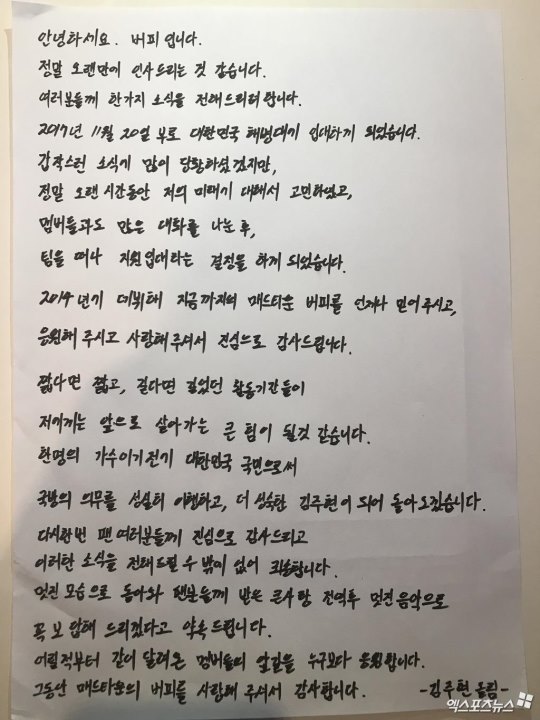 안녕하세요. 버피 입니다.
정말 오랜만에 인사드리는 것 같습니다.
여러분들께 한가지 소식을 전해드리려 합니다.
2017년 11월 20일 부로 대한민국 해병대에 입대하게 되었습니다.
갑작스런 소식에 많이 당황하셨겠지만,
정말 오랜 시간동안 저의 미래에 대해서 고민하였고,
멤버들과도 많은 대화를 나눈 후,
팀을 떠나 지원입대라는 결정을 하게 되었습니다.
2014년에 데뷔해 지금까지의 매드타운 버피를 언제나 믿어주시고,
응원해 주시고 사랑해주셔서 진심으로 감사드립니다.
짧다면 짧고, 길다면 길었던 활동기간들이
저에게는 앞으로 살아가는 큰 힘이 될것 같습니다.
한명의 가수이기전에 대한민국 국민으로써
국방의 의무를 성실히 이행하고, 더 성숙한 김주현이 되어 돌아오겠습니다.
다시한번 팬 여러분들께 진심으로 감사드리고
이러한 소식을 전해드릴 수 밖에 없어 죄송합니다.
멋진 모습으로 돌아와 팬분들께 받은 큰사랑 전역후 멋진음악으로
꼭 보답해 드리겠다고 약속드립니다.
어릴적부터 같이 달려온 멤버들의 앞길을 누구보다 응원합니다.
그동안 매드타운의 버피를 사랑해 주셔서 감사합니다. -김주현 올림-
엑스포츠뉴스